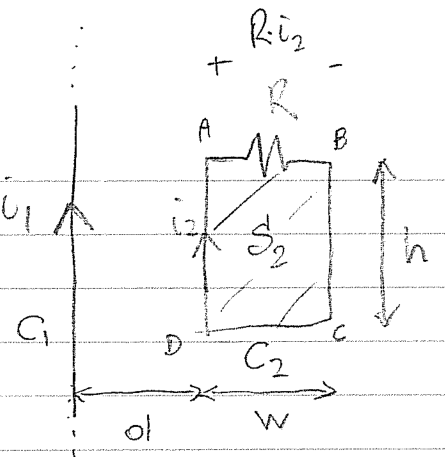 R·i₂
+ -
R
A B
i₁ i₂ S₂ h
C₁ D C₂ C
d w